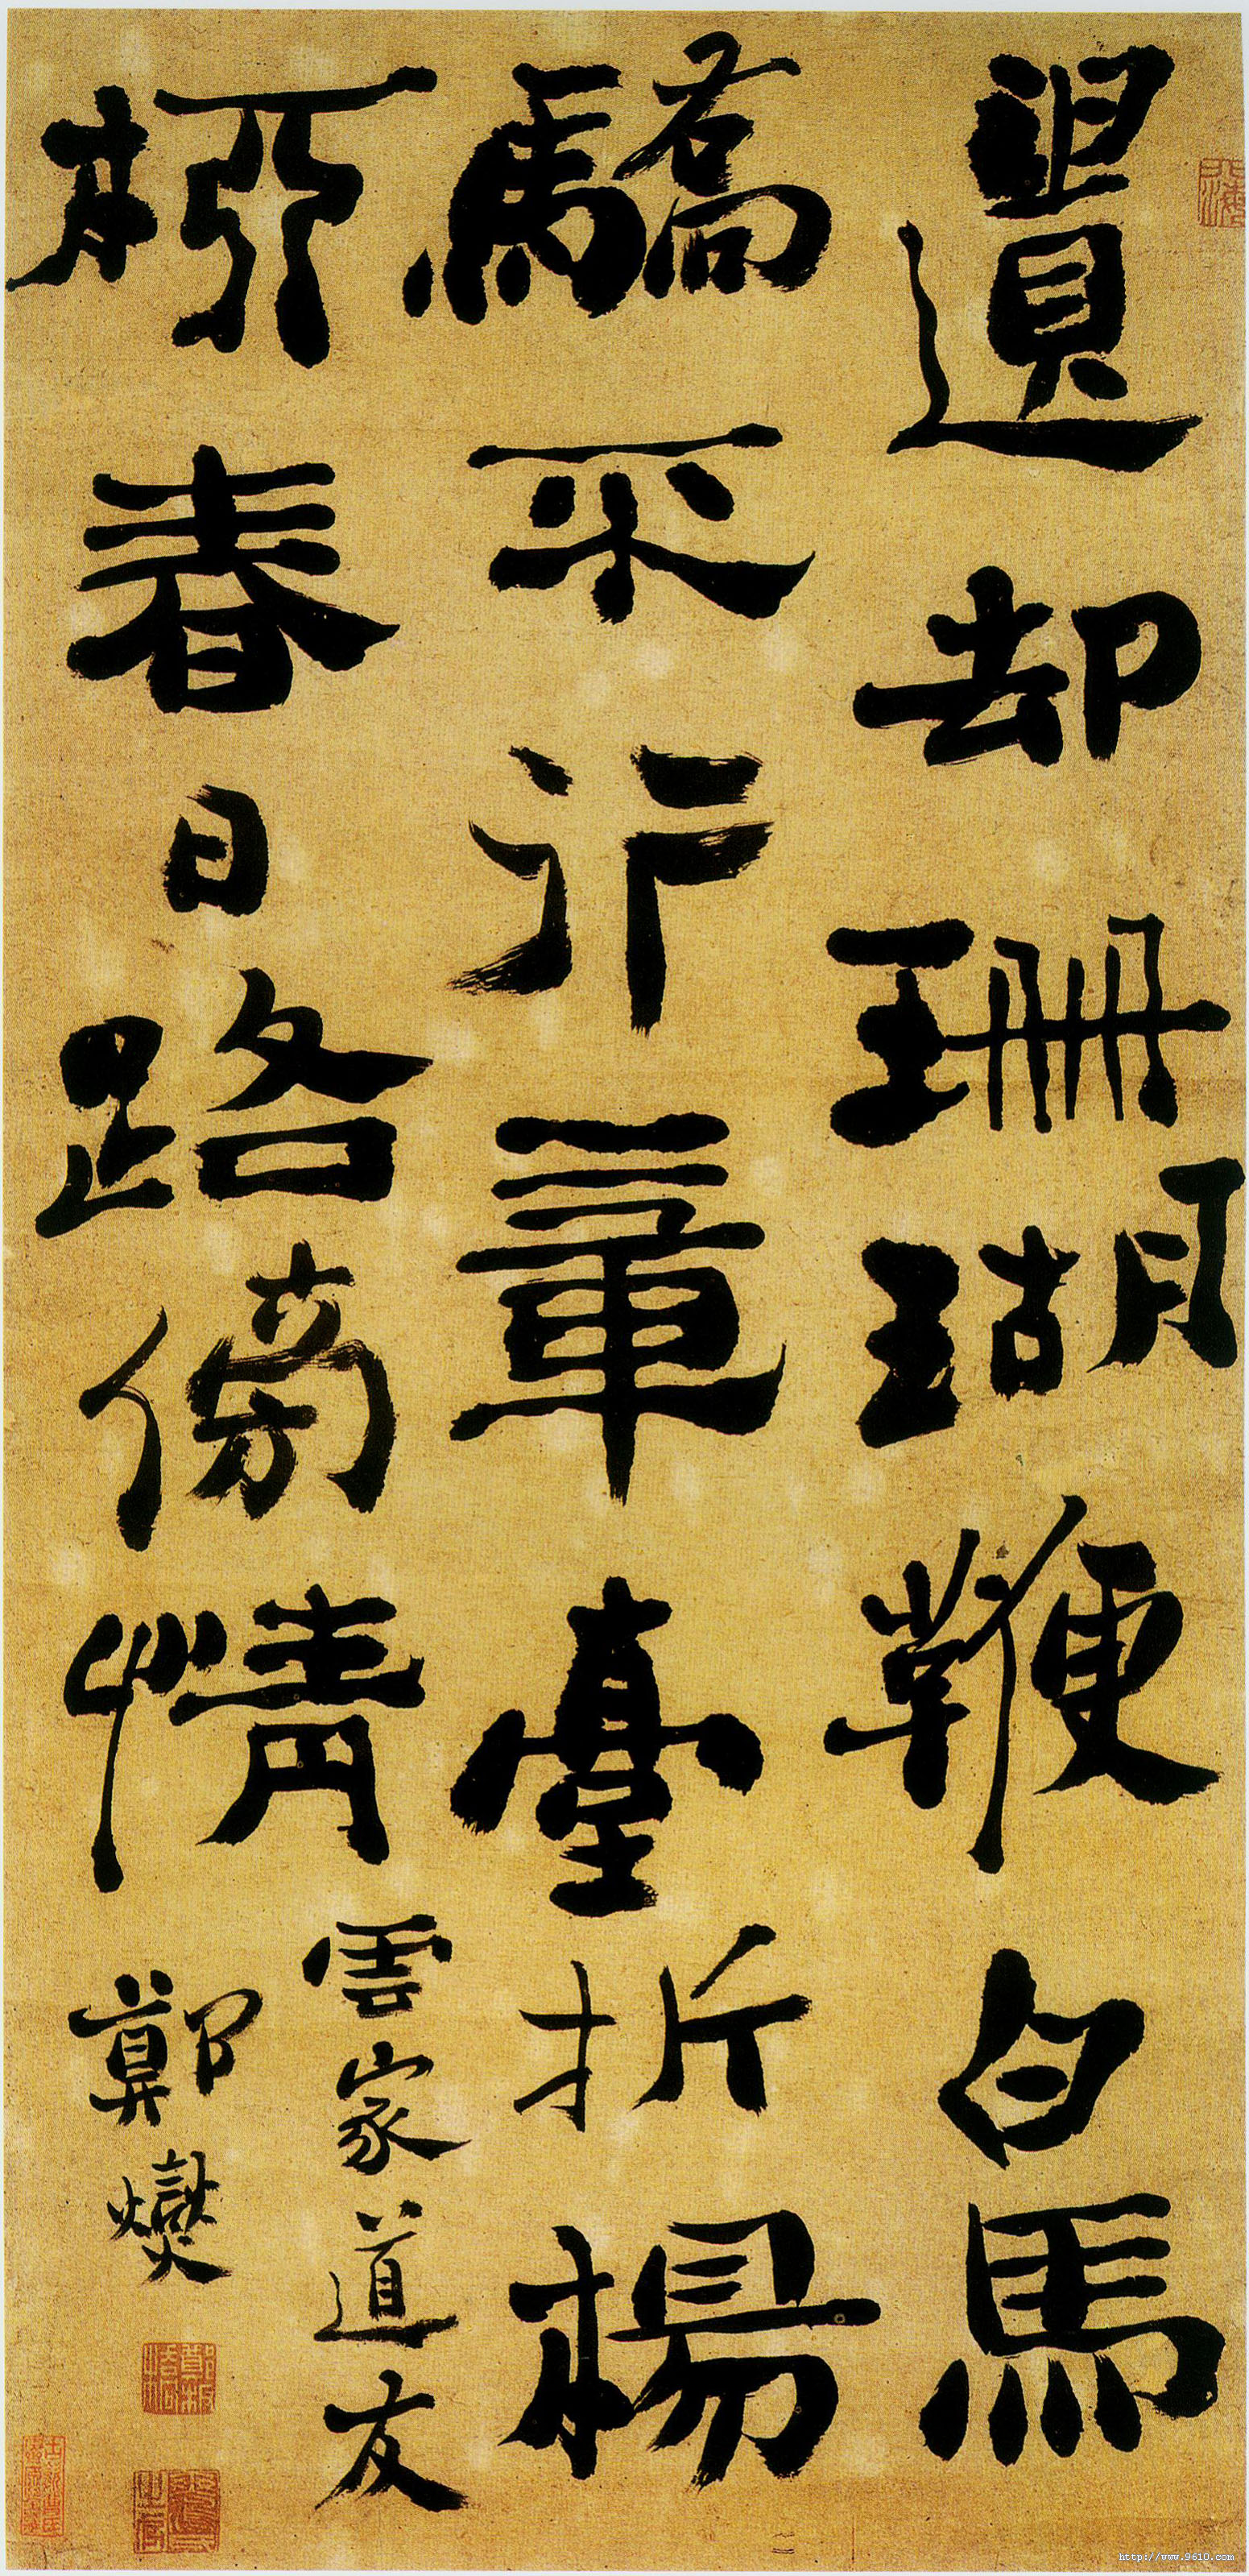 遺却珊瑚鞭白馬
驕不行章臺折楊
柳春日路傍情
雲家道友
鄭燮
http://www.9610.com